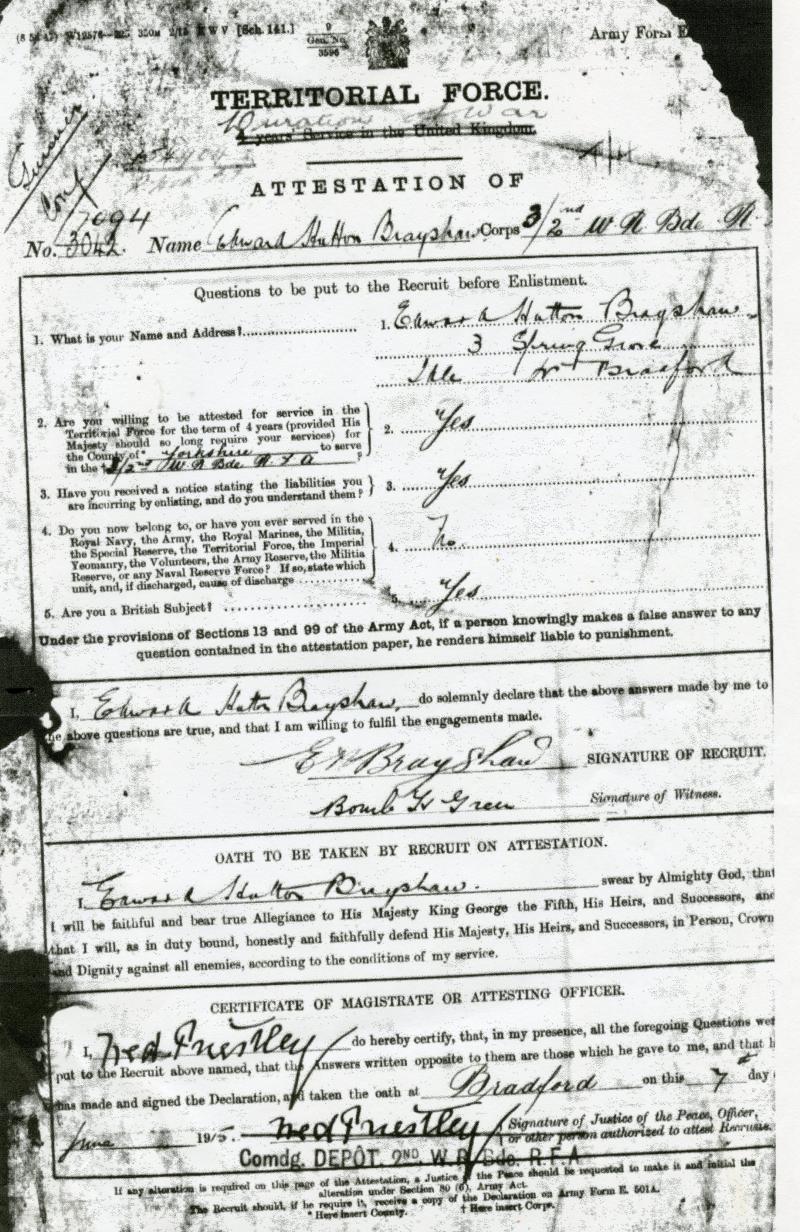 350M 2/15 [Sch. 141.] 9 Army Form E
Gen. No.
3596
TERRITORIAL FORCE.
Duration of War
4 years' Service in the United Kingdom.
Gunner
ATTESTATION OF
7094
No. 3042 Name Edward Hutton Brayshaw Corps 3/2nd W R Bde R
Questions to be put to the Recruit before Enlistment.
1. What is your Name and Address? 1. Edward Hutton Brayshaw
3 Spring Grove
Idle Nr Bradford
2. Are you willing to be attested for service in the
Territorial Force for the term of 4 years (provided His
Majesty should so long require your services) for
the County of* Yorkshire to serve
in the 3/2nd W R Bde R F A 2. Yes
3. Have you received a notice stating the liabilities you
are incurring by enlisting, and do you understand them? 3. Yes
4. Do you now belong to, or have you ever served in the
Royal Navy, the Army, the Royal Marines, the Militia,
the Special Reserve, the Territorial Force, the Imperial
Yeomanry, the Volunteers, the Army Reserve, the Militia
Reserve, or any Naval Reserve Force? If so, state which
unit, and, if discharged, cause of discharge 4. No
5. Are you a British Subject? 5. Yes
Under the provisions of Sections 13 and 99 of the Army Act, if a person knowingly makes a false answer to any
question contained in the attestation paper, he renders himself liable to punishment.
I, Edward Hutton Brayshaw, do solemnly declare that the above answers made by me to
he above questions are true, and that I am willing to fulfil the engagements made.
E H Brayshaw SIGNATURE OF RECRUIT.
Bomb G Green Signature of Witness.
OATH TO BE TAKEN BY RECRUIT ON ATTESTATION.
I, Edward Hutton Brayshaw. swear by Almighty God, that
I will be faithful and bear true Allegiance to His Majesty King George the Fifth, His Heirs, and Successors, and
that I will, as in duty bound, honestly and faithfully defend His Majesty, His Heirs, and Successors, in Person, Crown
and Dignity against all enemies, according to the conditions of my service.
CERTIFICATE OF MAGISTRATE OR ATTESTING OFFICER.
I, Fred Priestley do hereby certify, that, in my presence, all the foregoing Questions wer
put to the Recruit above named, that the Answers written opposite to them are those which he gave to me, and that h
has made and signed the Declaration, and taken the oath at Bradford on this 7th day
June 1915. Fred Priestley Signature of Justice of the Peace, Officer,
or other person authorized to attest Recruits.
Comdg. DEPÔT. 2ND. W. R. Bde. R.F.A
If any alteration is required on this page of the Attestation, a Justice of the Peace should be requested to make it and initial the
alteration under Section 80 (6), Army Act.
The Recruit should, if he require it, receive a copy of the Declaration on Army Form E. 501A.
* Here insert County. † Here insert Corps.